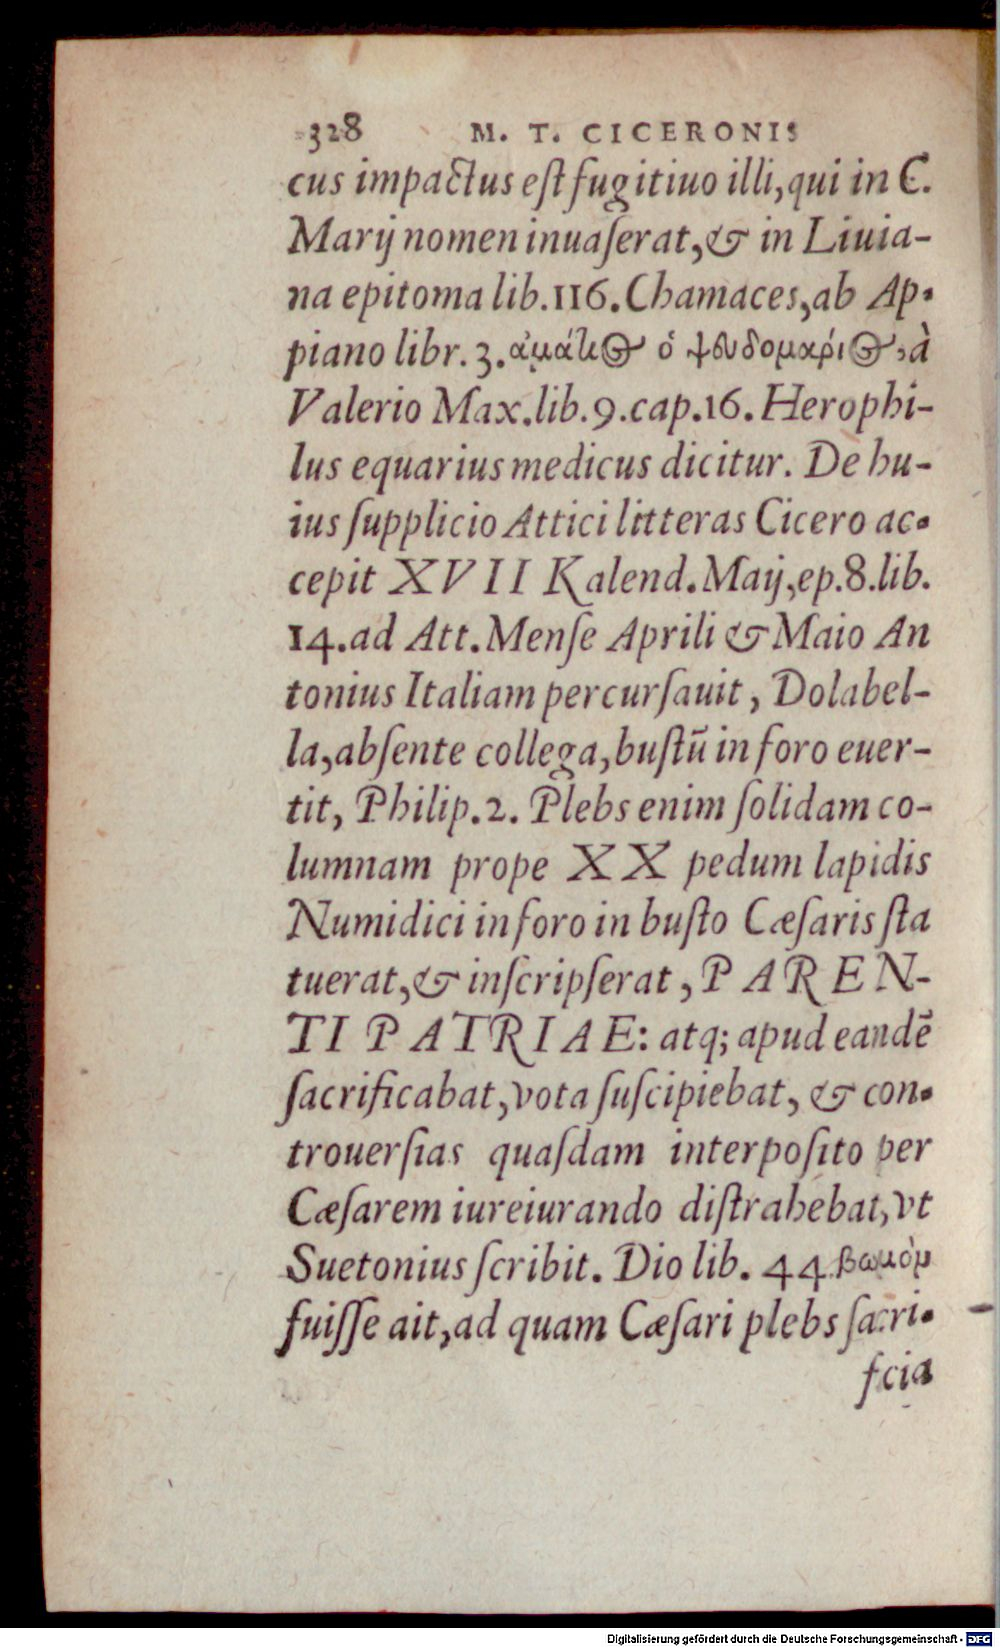 328 M. T. CICERONIS
cus impactus eſt fugitiuo illi, qui in C.
Marij nomen inuaſerat, & in Liuia-
na epitoma lib. 116. Chamaces, ab Ap-
piano libr. 3. ἀμάτιος ὁ ψευδομάριος, à
Valerio Max. lib. 9. cap. 16. Herophi-
lus equarius medicus dicitur. De hu-
ius ſupplicio Attici litteras Cicero ac-
cepit XVII Kalend. Maij, ep. 8. lib.
14. ad Att. Menſe Aprili & Maio An
tonius Italiam percurſauit, Dolabel-
la, abſente collega, buſtū in foro euer-
tit, Philip. 2. Plebs enim ſolidam co-
lumnam prope XX pedum lapidis
Numidici in foro in buſto Cæſaris ſta
tuerat, & inſcripſerat, PAREN-
TI PATRIAE: atq; apud eandē
ſacrificabat, vota ſuſcipiebat, & con-
trouerſias quaſdam interpoſito per
Cæſarem iureiurando diſtrahebat, vt
Suetonius ſcribit. Dio lib. 44. βωμὸν
fuiſſe ait, ad quam Cæſari plebs ſacri-
fcia
Digitalisierung gefördert durch die Deutsche Forschungsgemeinschaft - DFG